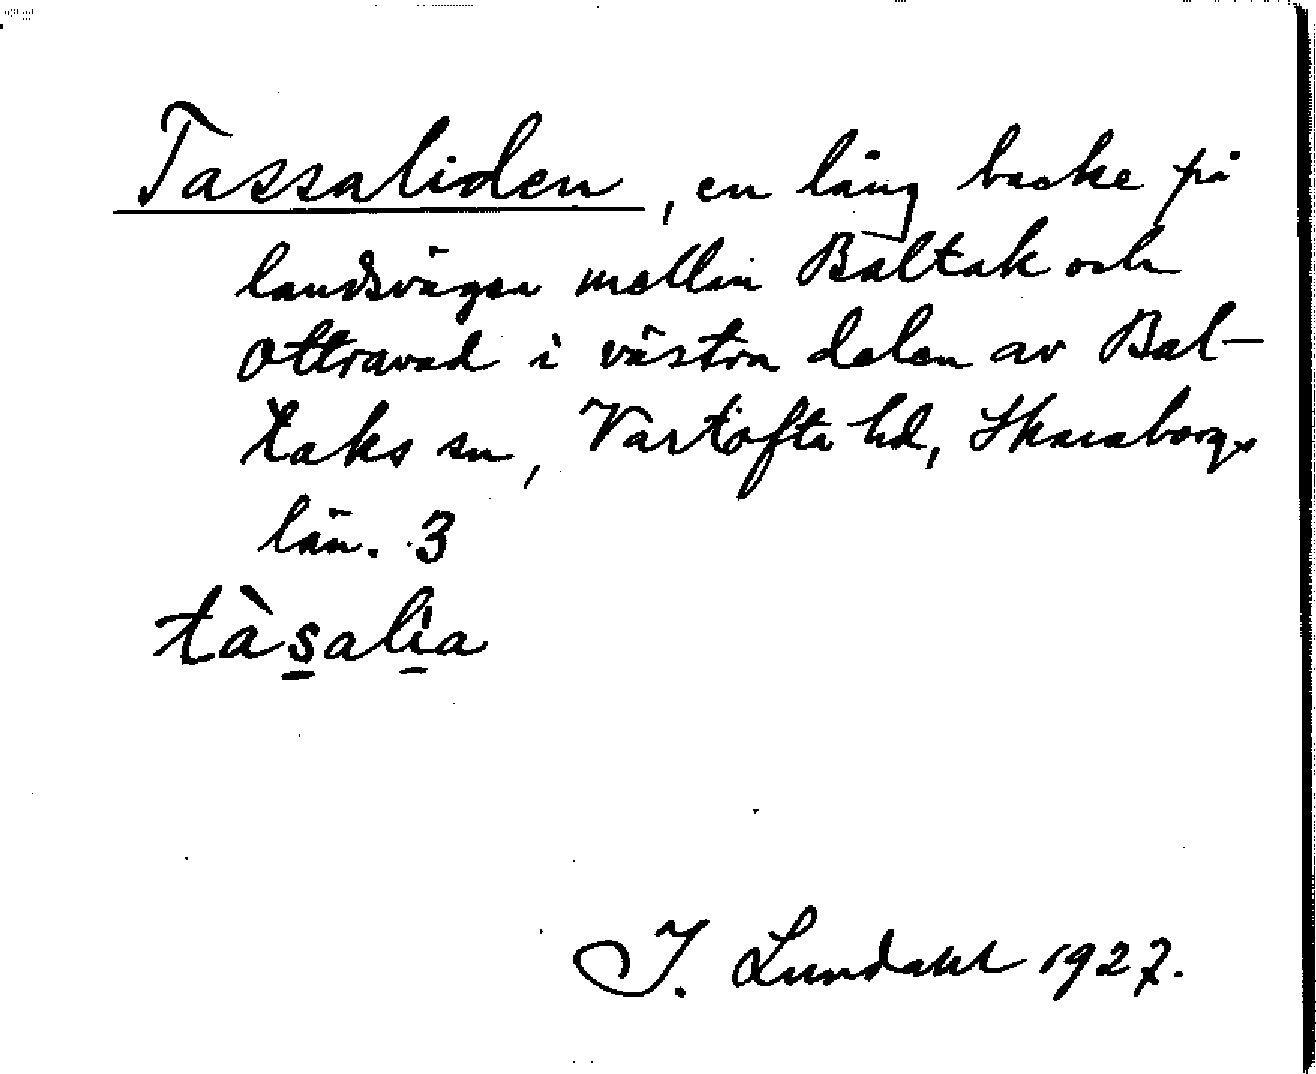 Tassaliden, en lång backe på
landsvägen mellan Baltak och
Ottravad i västra delen av Bal-
taks sn, Vartofta hd, Skaraborgs
län. 3
tàsalia
I. Lundahl 1927.